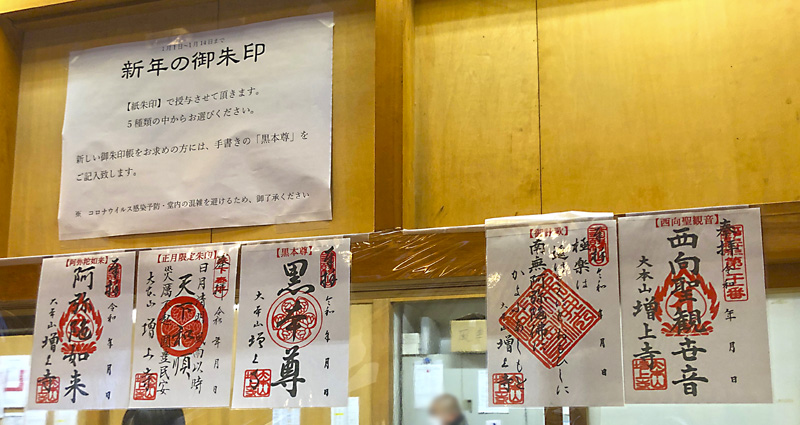 1月1日〜1月14日まで
新年の御朱印
【紙朱印】で授与させて頂きます。
5種類の中からお選びください。
新しい御朱印帳をお求めの方には、手書きの「黒本尊」を
ご記入致します。
※ コロナウイルス感染予防・堂内の混雑を避けるため、御了承ください
【阿弥陀如来】
奉拝
令和 年 月 日
阿弥陀如来
大本山 増上寺
【正月限定朱印】
奉拝
令和 年 月 日
天下和順
日月清明
大本山 増上寺
【黒本尊】
奉拝
令和 年 月 日
黒本尊
大本山 増上寺
奉拝
令和 年 月 日
極楽は
南無阿弥陀佛
大本山 増上寺
【西向聖観音】
奉拝
年 月 日
西向聖観世音
大本山 増上寺